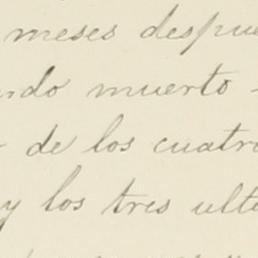 meses despue
ando muerto -
de los cuatro
y los tres ulti